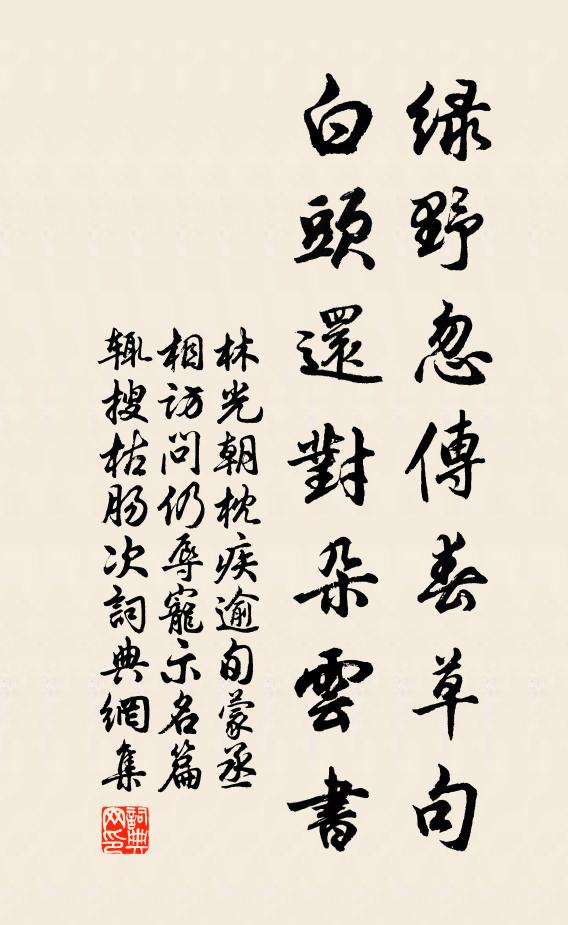 绿野忽傳春草句
白頭還對朵雲書
林光朝枕疾逾旬蒙丞
相访问仍辱寵示名篇
辄搜枯肠次詞典網集
詞典
网印